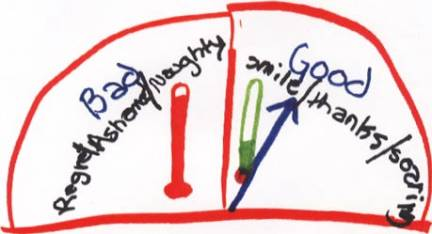 Bad
Regret/Ashamed/Naughty
Good
smile/thanks/soaring